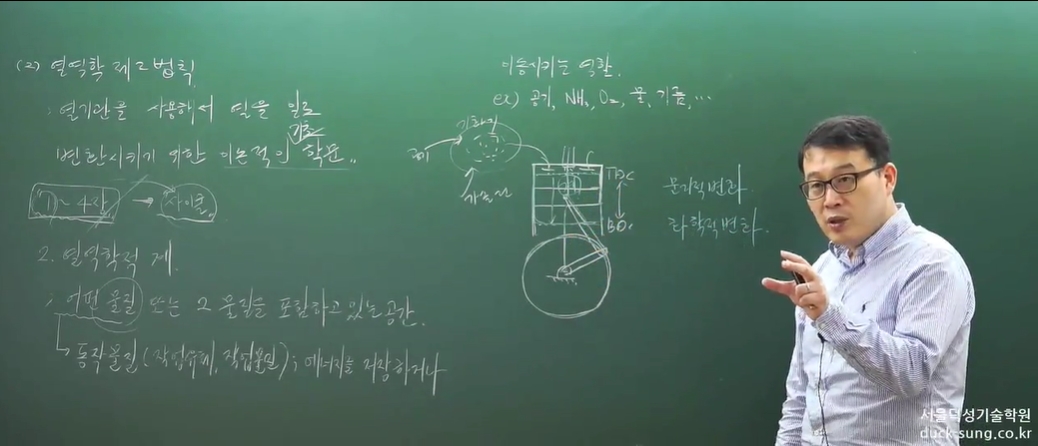 (2) 열역학 제 2 법칙
; 열기관을 사용해서 열을 일로
기초
변환시키기 위한 이론적인 학문..
1 ~ 4장 → 사이클.
2. 열역학적 계.
; 어떤 물질 또는 그 물질을 포함하고 있는 공간.
동작물질 (작업유체, 작업물질) ; 에너지를 저장하거나
이동시키는 역할.
ex) 공기, NH₃, O₂, 물, 기름, ...
기화기
공기
가솔린
TDC
BDC
물리적변화.
화학적변화.
서울덕성기술학원
duck-sung.co.kr